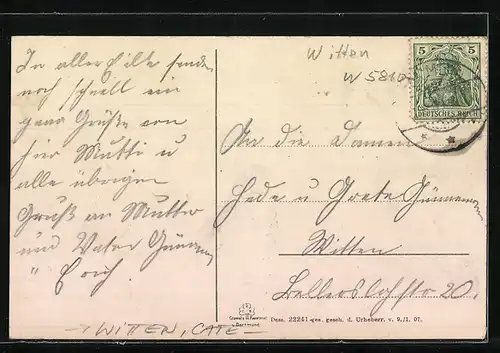 In aller Eile sende
noch schnell ein
paar Grüße von
hier Mutti u
alle übrigen
Gruß an Mutter
und Vater
" Erich.
→ WITTEN, CAFE –
Witten
W 5810
5 5
DEUTSCHES REICH
An die Damen
Hede u Grete
Witten
20.
Dortmund
Dess. 22241 ges. gesch. d. Urheberr. v. 9./1. 07.